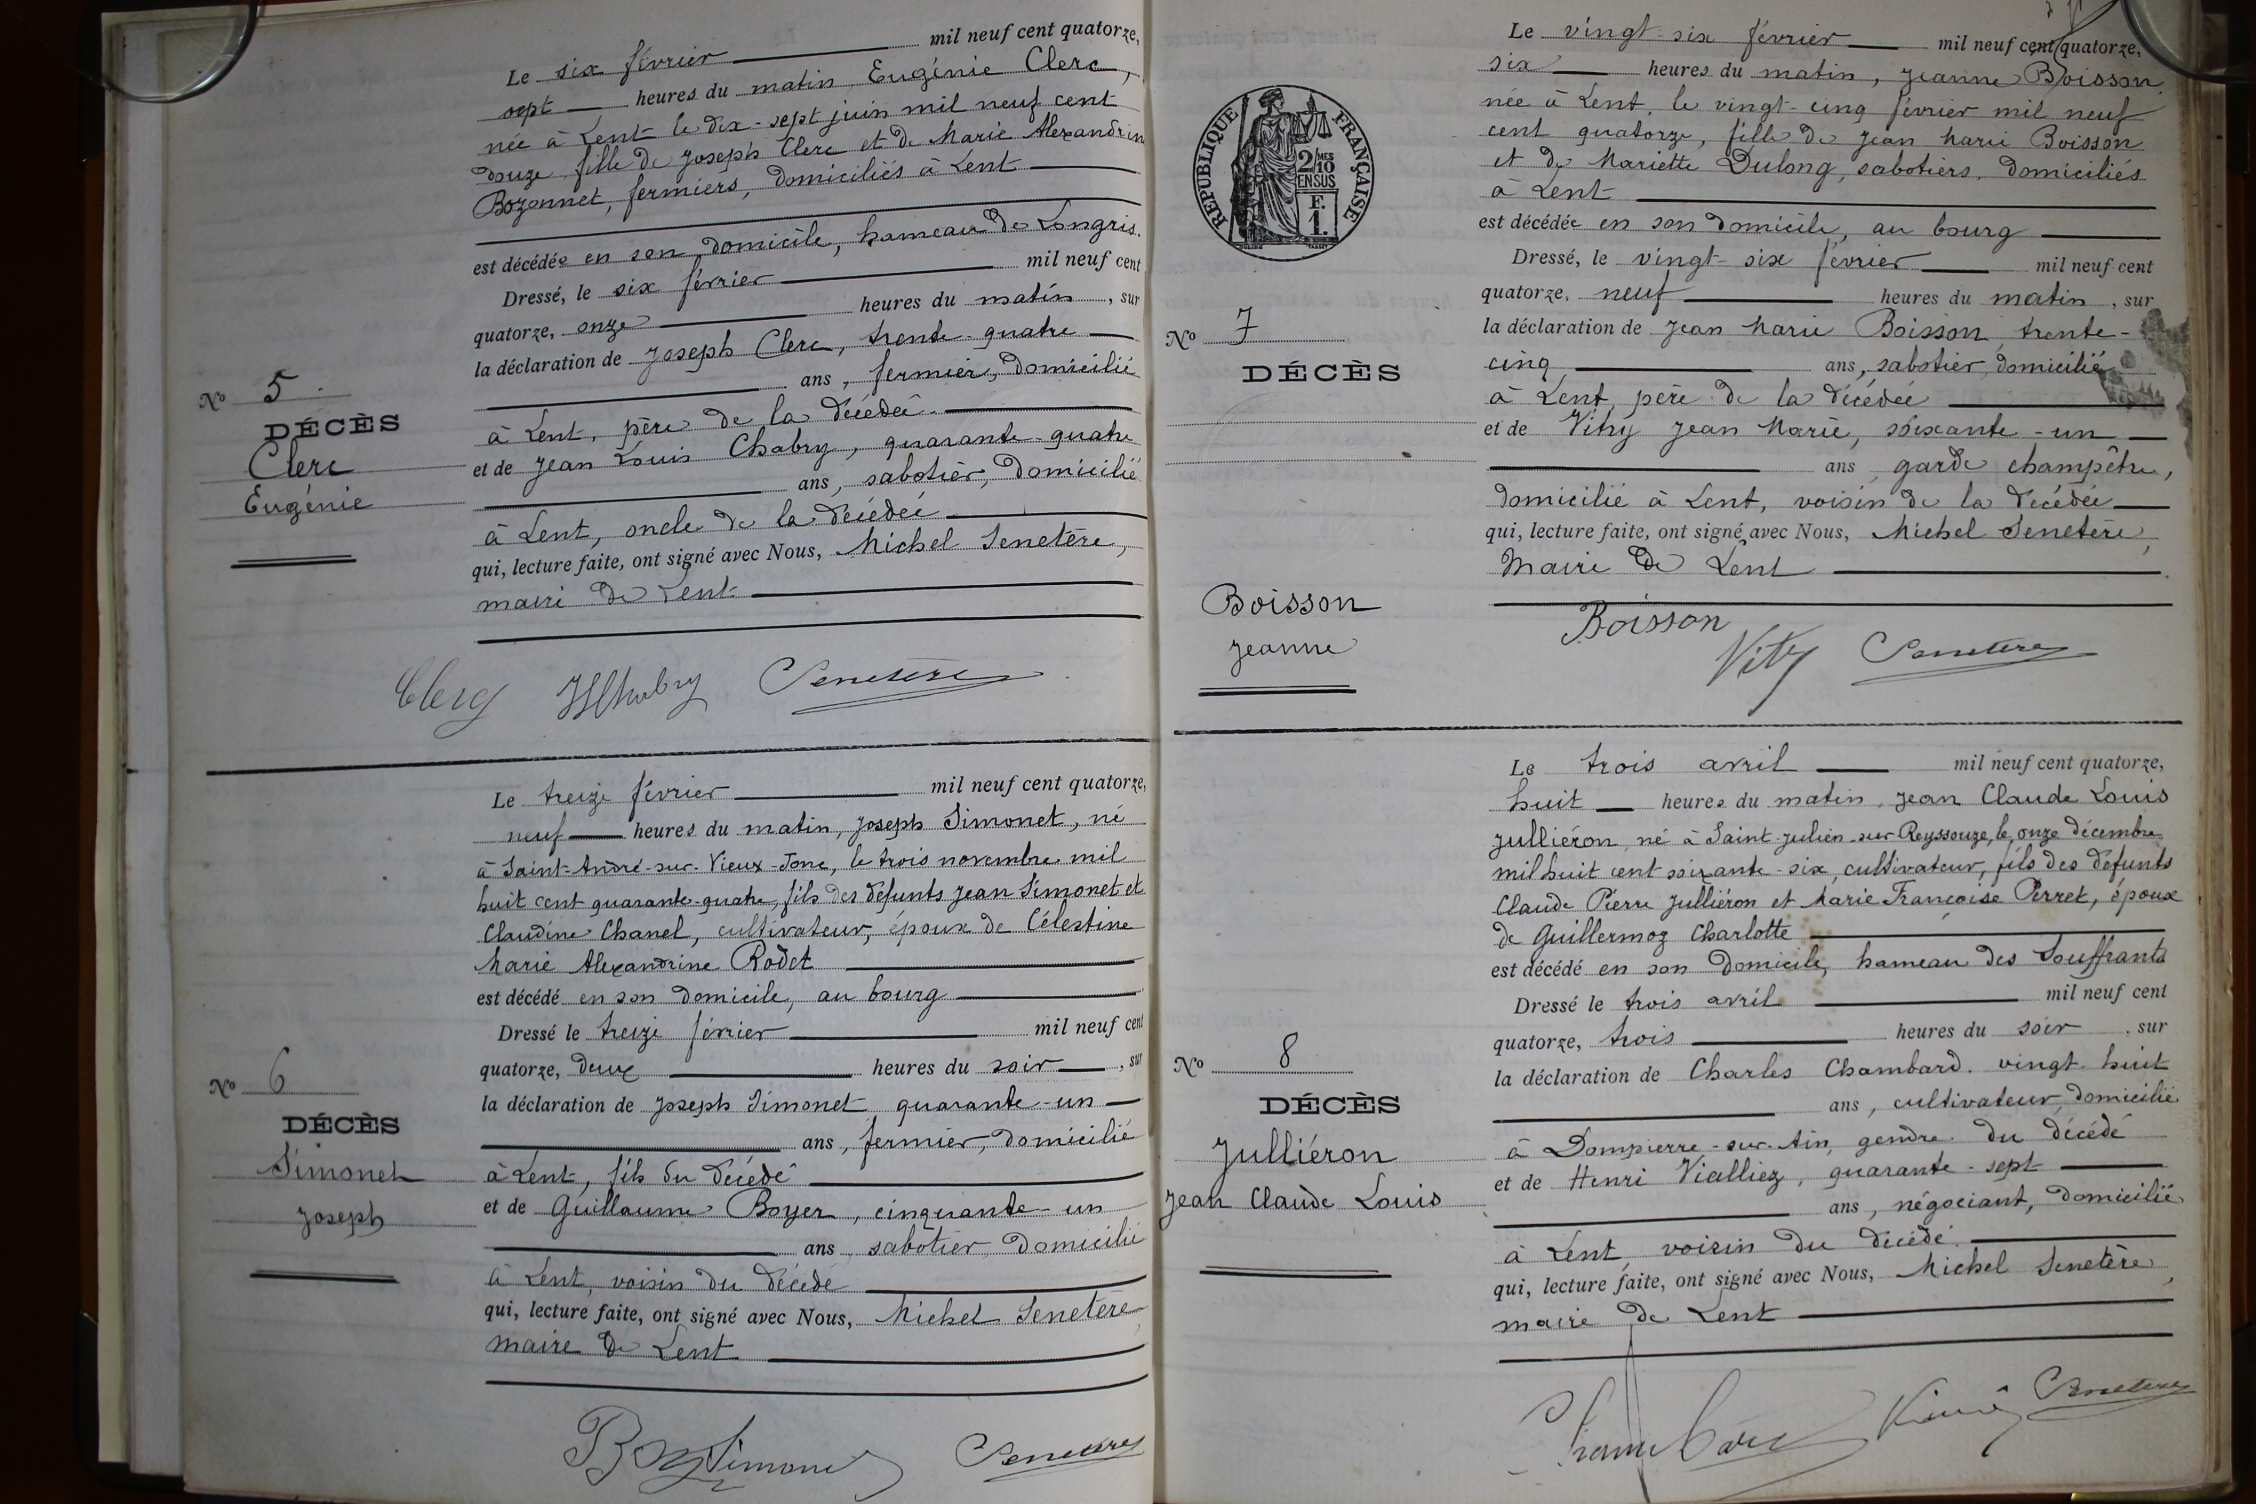 Le six février mil neuf cent quatorze,
sept heures du matin, Eugénie Clerc,
née à Lent le dix-sept juin mil neuf cent
douze, fille de Joseph Clerc et de Marie Alexandrin
Bozonnet, fermiers, domiciliés à Lent
est décédée en son domicile, hameau de Longris.
Dressé, le six février mil neuf cent
quatorze, onze heures du matin, sur
la déclaration de Joseph Clerc, trente-quatre
ans, fermier, domicilié
à Lent, père de la décédée
et de Jean Louis Chabry, quarante-quatre
ans, sabotier, domicilié
à Lent, oncle de la décédée
qui, lecture faite, ont signé avec Nous, Michel Senetère,
maire de Lent
No 5
DÉCÈS
Clerc
Eugénie
Clerc Chabry Senetère
Le treize février mil neuf cent quatorze,
neuf heures du matin, Joseph Simonet, né
à Saint-André-sur-Vieux-Jonc, le trois novembre mil
huit cent quarante-quatre, fils des défunts Jean Simonet et
Claudine Chanel, cultivateur, époux de Célestine
Marie Alexandrine Rodet
est décédé en son domicile, au bourg
Dressé le treize février mil neuf cent
quatorze, deux heures du soir, sur
la déclaration de Joseph Simonet quarante-un
ans, fermier, domicilié
à Lent, fils du décédé
et de Guillaume Boyer, cinquante-un
ans, sabotier, domicilié
à Lent, voisin du décédé
qui, lecture faite, ont signé avec Nous, Michel Senetère,
maire de Lent
No 6
DÉCÈS
Simonet
Joseph
Simonet Senetère
RÉPUBLIQUE FRANÇAISE
2/10 MES
EN SUS
F.
1.
Le vingt-six février mil neuf cent quatorze,
six heures du matin, Jeanne Boisson
née à Lent, le vingt-cinq février mil neuf
cent quatorze, fille de Jean Marie Boisson
et de Mariette Dulong, sabotiers, domiciliés
à Lent
est décédée en son domicile, au bourg
Dressé, le vingt-six février mil neuf cent
quatorze, neuf heures du matin, sur
la déclaration de Jean Marie Boisson, trente-
cinq ans, sabotier, domicilié
à Lent, père de la décédée
et de Vitry Jean Marie, soixante-un
ans, garde champêtre,
domicilié à Lent, voisin de la décédée
qui, lecture faite, ont signé avec Nous, Michel Senetère,
Maire de Lent
No 7
DÉCÈS
Boisson
Jeanne
Boisson
Senetère
Le trois avril mil neuf cent quatorze,
huit heures du matin, Jean Claude Louis
Julliéron, né à Saint-Julien-sur-Reyssouze, le onze décembre
mil huit cent soixante-six, cultivateur, fils des défunts
Claude Pierre Julliéron et Marie Françoise Perret, époux
de Guillermoz Charlotte
est décédé en son domicile, hameau des Souffrants
Dressé le trois avril mil neuf cent
quatorze, trois heures du soir, sur
la déclaration de Charles Chambard, vingt-huit
ans, cultivateur, domicilié
à Dompierre-sur-Ain, gendre du décédé
et de Henri Vialliez, quarante-sept
ans, négociant, domicilié
à Lent, voisin du décédé
qui, lecture faite, ont signé avec Nous, Michel Senetère,
maire de Lent
No 8
DÉCÈS
Julliéron
Jean Claude Louis
Chambard Senetère